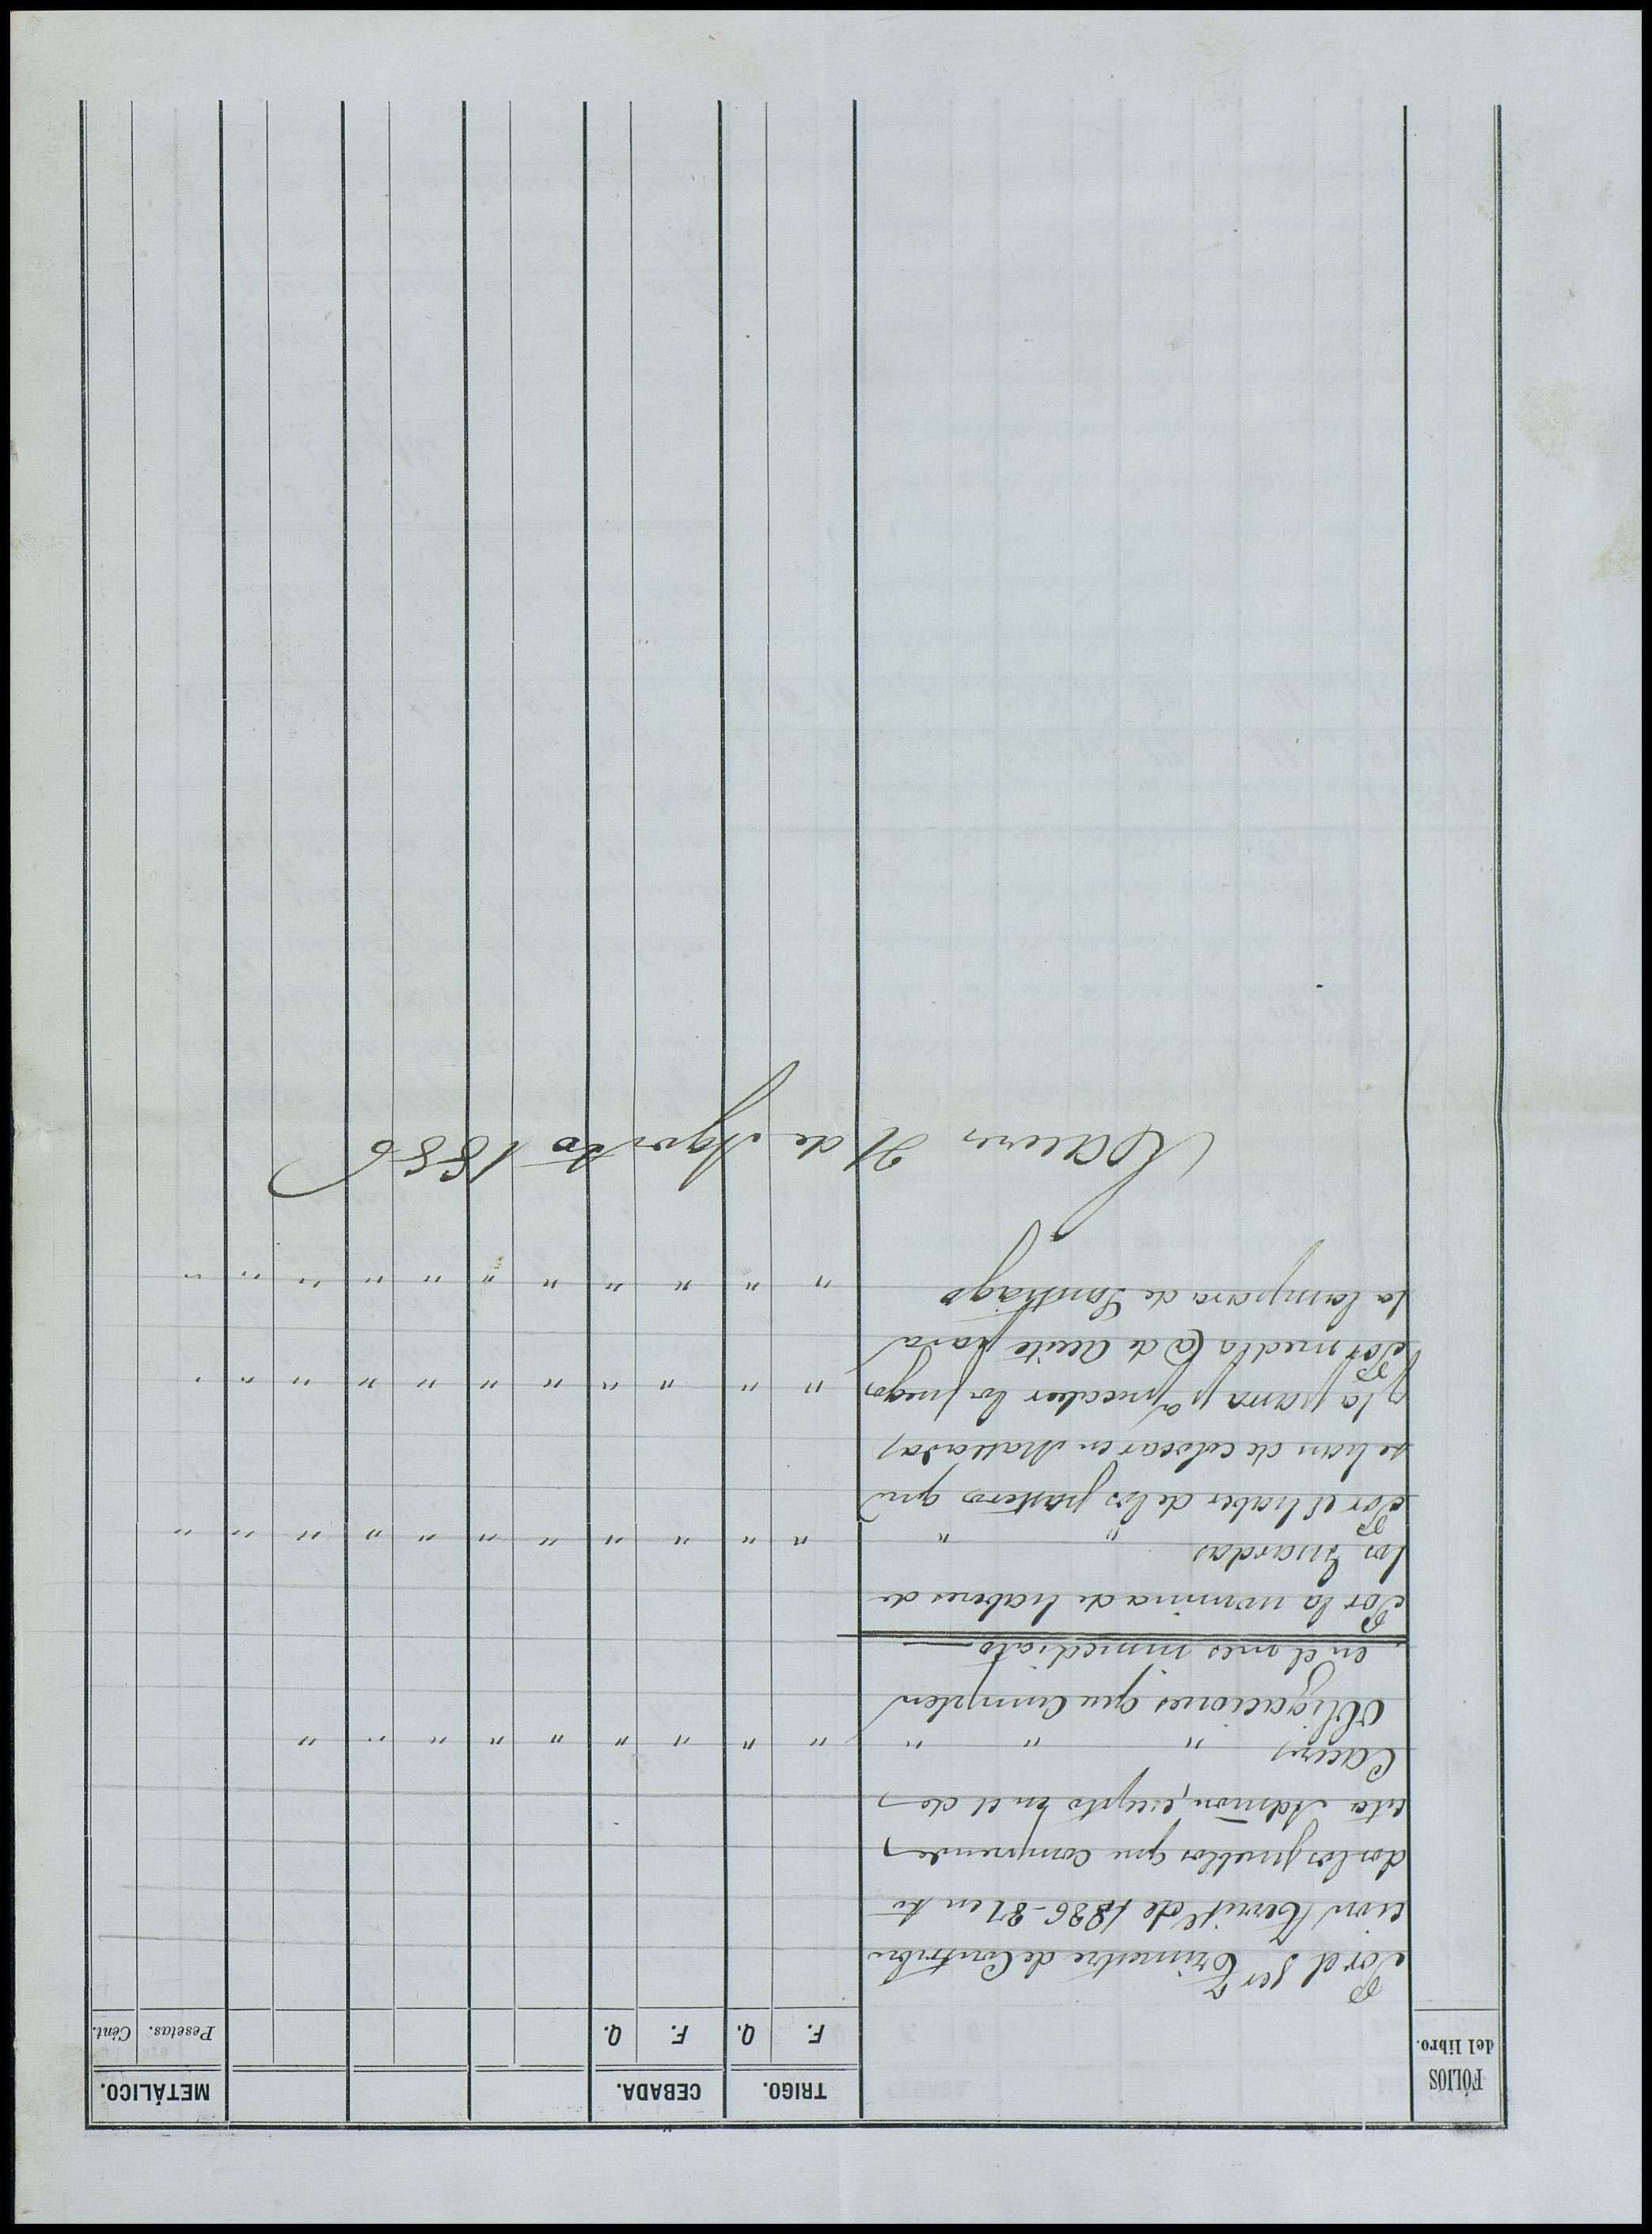 FÓLIOS del libro. TRIGO. CEBADA. METÁLICO.
F. Q. F. Q. Pesetas. Cént.
Por el 1er Trimestre de Contribu
cion Territl de 1886-87 en to
dos los pueblos que comprende
esta Admon, excepto en el de
Caceres " " " " " " " " " " " " " " "
Obligaciones que cumplen
en el mes inmediato
Por la nomina de haberes de
los Guardas " " " " " " " " " " " " " "
Por el haber de los pasteros que
se han de colocar en Mallada,
la parra pa precaber los fuegos " " " " " " " " " " "
Por media @ de aceite para
la lampara de Santiago " " " " " " " " " " "
Caceres 31 de Agosto 1886